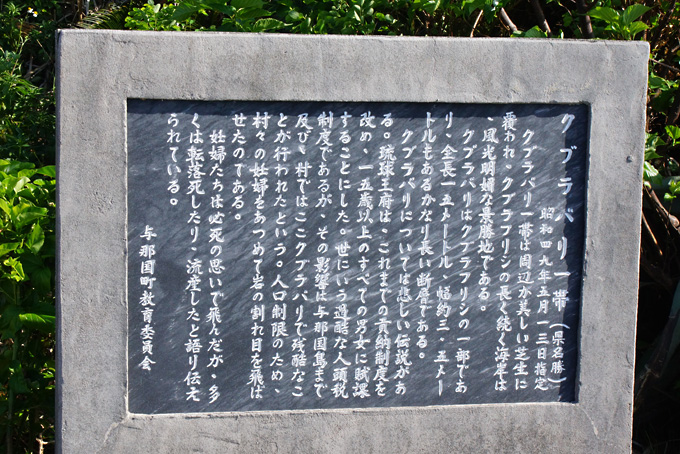 クブラバリ一帯(県名勝)
昭和四九年五月一三日指定
クブラバリ一帯は周辺が美しい芝生に
覆われ、クブラフリシの長く続く海岸は
、風光明媚な景勝地である。
クブラバリはクブラフリシの一部であ
り、全長一五メートル、幅約三・五メー
トルもあるかなり長い断層である。
クブラバリについては悲しい伝説があ
る。琉球王府は、これまでの貢納制度を
改め、一五歳以上のすべての男女に賦課
することにした。世にいう過酷な人頭税
制度であるが、その影響は与那国島まで
及び、村ではここクブラバリで残酷なこ
とが行われたという。人口制限のため、
村々の妊婦をあつめて岩の割れ目を飛ば
せたのである。
妊婦たちは必死の思いで飛んだが、多
くは転落死したり、流産したと語り伝え
られている。
与那国町教育委員会